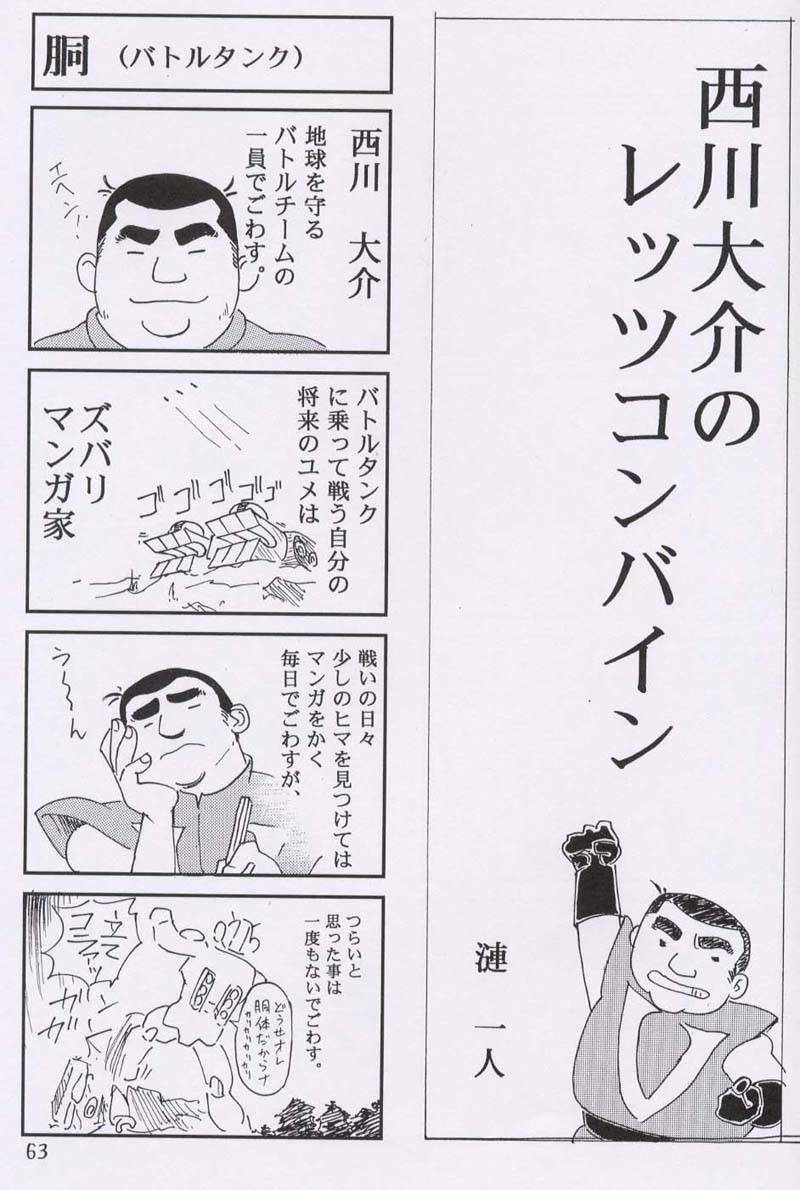 西川大介の
レッツコンバイン
漣 一人
胴 （バトルタンク）
西川 大介
地球を守る
バトルチームの
一員でごわす。
エヘン!
バトルタンク
に乗って戦う自分の
将来のユメは
ゴゴゴゴゴ
ズバリ
マンガ家
戦いの日々
少しのヒマを見つけては
マンガをかく
毎日でごわすが、
う～～ん
つらいと
思った事は
一度もないでごわす。
どうせオレ
胴体だからナ
カリカリカリカリ
立て
コラァッ
ガン
ガン
63